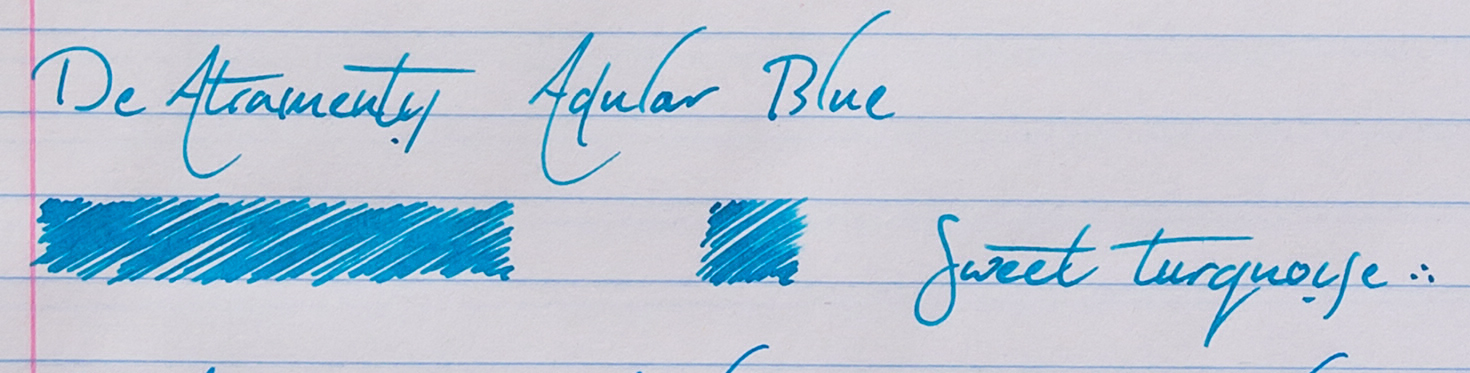 De Atramentis Adular Blue
Sweet turquoise :.